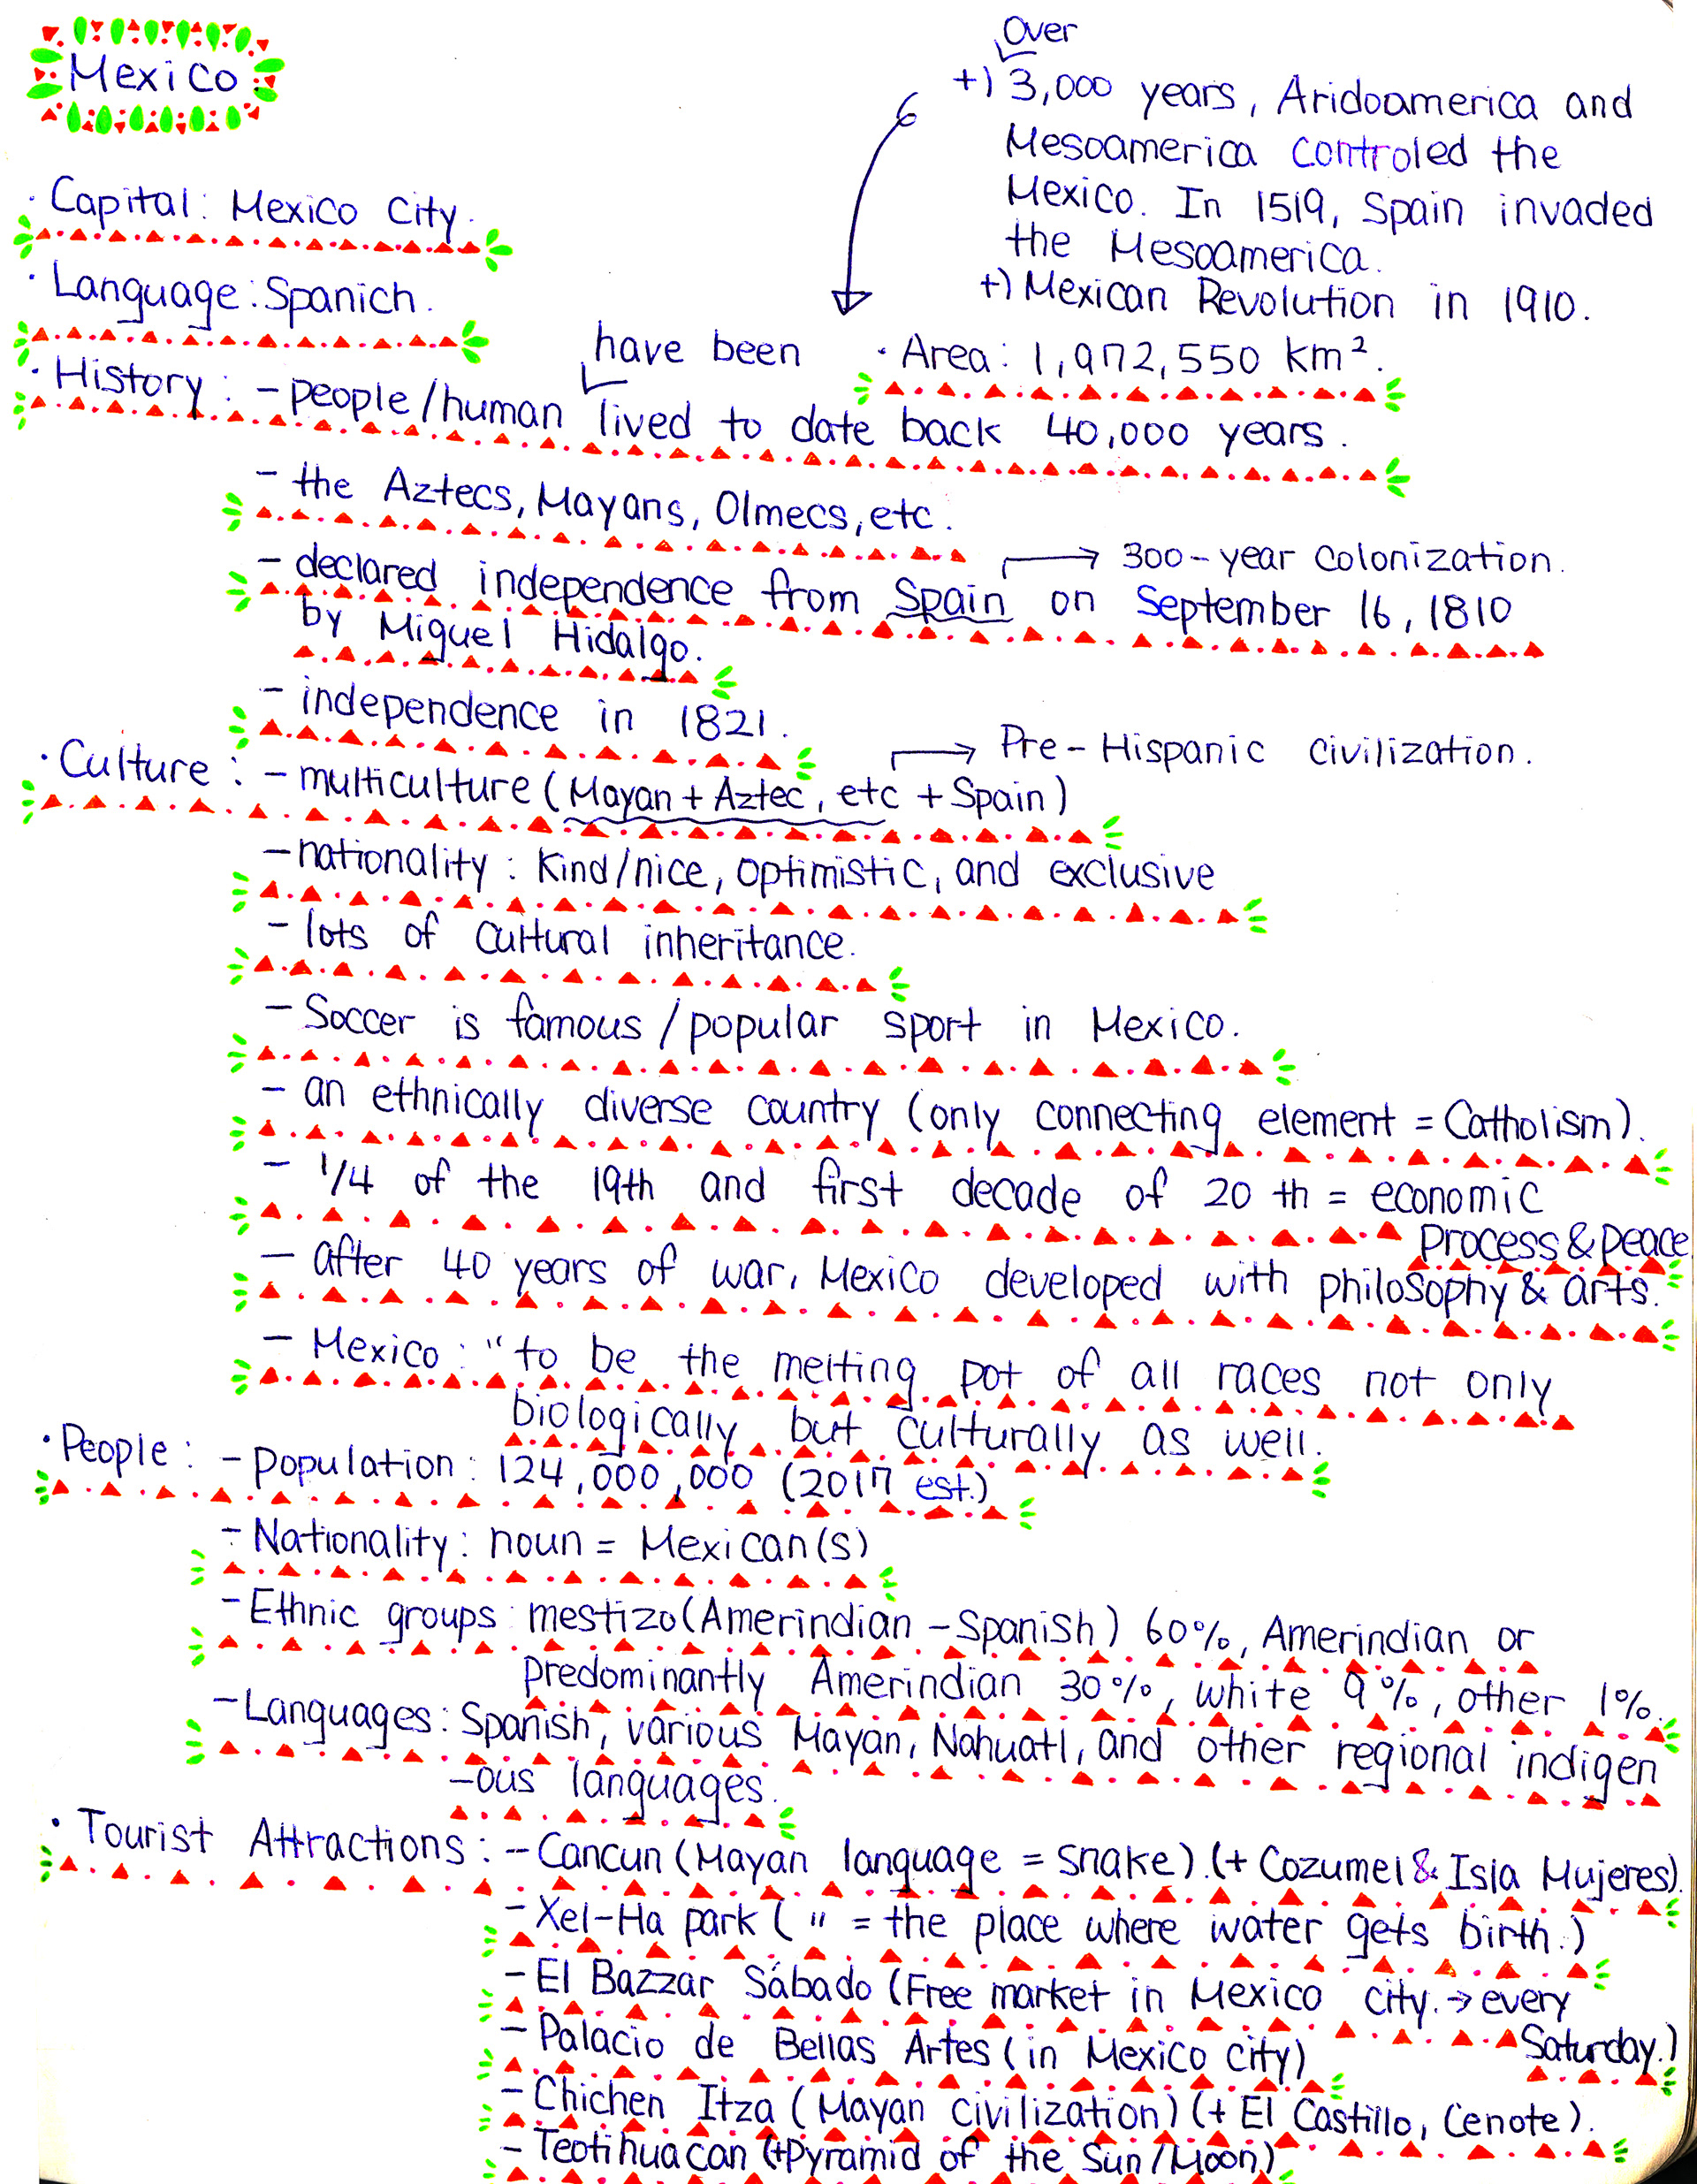 Mexico
Over
+) 3,000 years, Aridoamerica and
Mesoamerica controled the
Mexico. In 1519, Spain invaded
the Mesoamerica.
+) Mexican Revolution in 1910.
· Capital: Mexico City.
· Language: Spanich.
· Area: 1,972,550 km².
have been
· History: - people/human lived to date back 40,000 years.
- the Aztecs, Mayans, Olmecs, etc.
→ 300-year colonization.
- declared independence from Spain on September 16, 1810
by Miguel Hidalgo.
- independence in 1821.
→ Pre-Hispanic civilization.
· Culture: - multiculture (Mayan + Aztec, etc + Spain)
- nationality: kind/nice, optimistic, and exclusive
- lots of cultural inheritance.
- Soccer is famous/popular sport in Mexico.
- an ethnically diverse country (only connecting element = Catholism).
- 1/4 of the 19th and first decade of 20 th = economic
process & peace
- after 40 years of war, Mexico developed with philosophy & arts.
- Mexico: "to be the melting pot of all races not only
biologically but culturally as well.
· People: - population: 124,000,000 (2017 est.)
- Nationality: noun = Mexican(s)
- Ethnic groups: mestizo (Amerindian - Spanish) 60%, Amerindian or
predominantly Amerindian 30%, white 9%, other 1%.
- Languages: Spanish, various Mayan, Nahuatl, and other regional indigen
-ous languages.
· Tourist Attractions: - Cancun (Mayan language = snake). (+ Cozumel & Isla Mujeres).
- Xel-Ha park ( " = the place where water gets birth.)
- El Bazzar Sábado (Free market in Mexico city. → every
Saturday.)
- Palacio de Bellas Artes (in Mexico City)
- Chichen Itza (Mayan civilization) (+ El Castillo, Cenote).
- Teotihuacan (+Pyramid of the Sun/Moon)